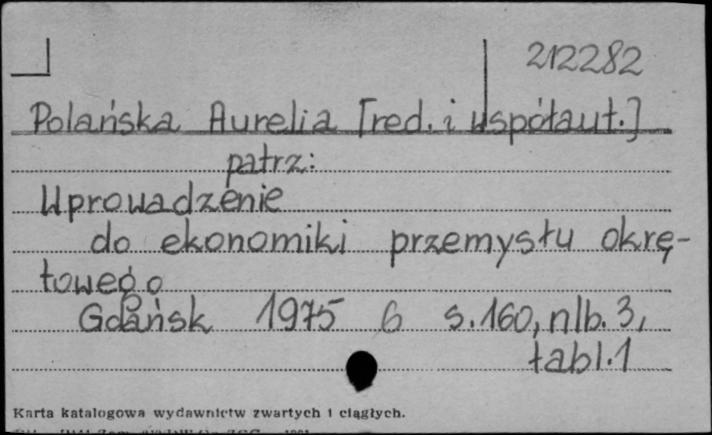 212282
Polańska Aurelia [red. i współaut.]
patrz:
Wprowadzenie
do ekonomiki przemysłu okrę-
towego
Gdańsk 1975 6 s. 160, nlb. 3,
tabl. 1
Karta katalogowa wydawnictw zwartych i ciągłych.